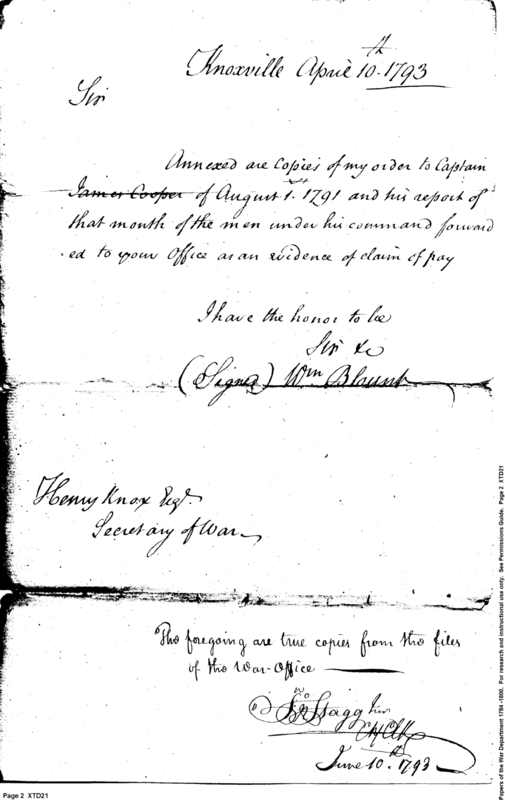 Knoxville April 10th 1793
Sir
Annexed are Copies of my order to Captain
James Cooper of August 1st 1791 and his report of
that month of the men under his command forward
ed to your Office as an evidence of claim of pay
I have the honor to be
Sir &c
(Signed) Wm Blount
Henry Knox Esqr.
Secretary of War
The foregoing are true copies from the files
of the War-Office
Jno Stagg Junr
Ch Clk
June 10th 1793
Page 2 XTD21
Papers of the War Department 1784 -1800. For research and instructional use only. See Permissions Guide. Page 2 XTD21